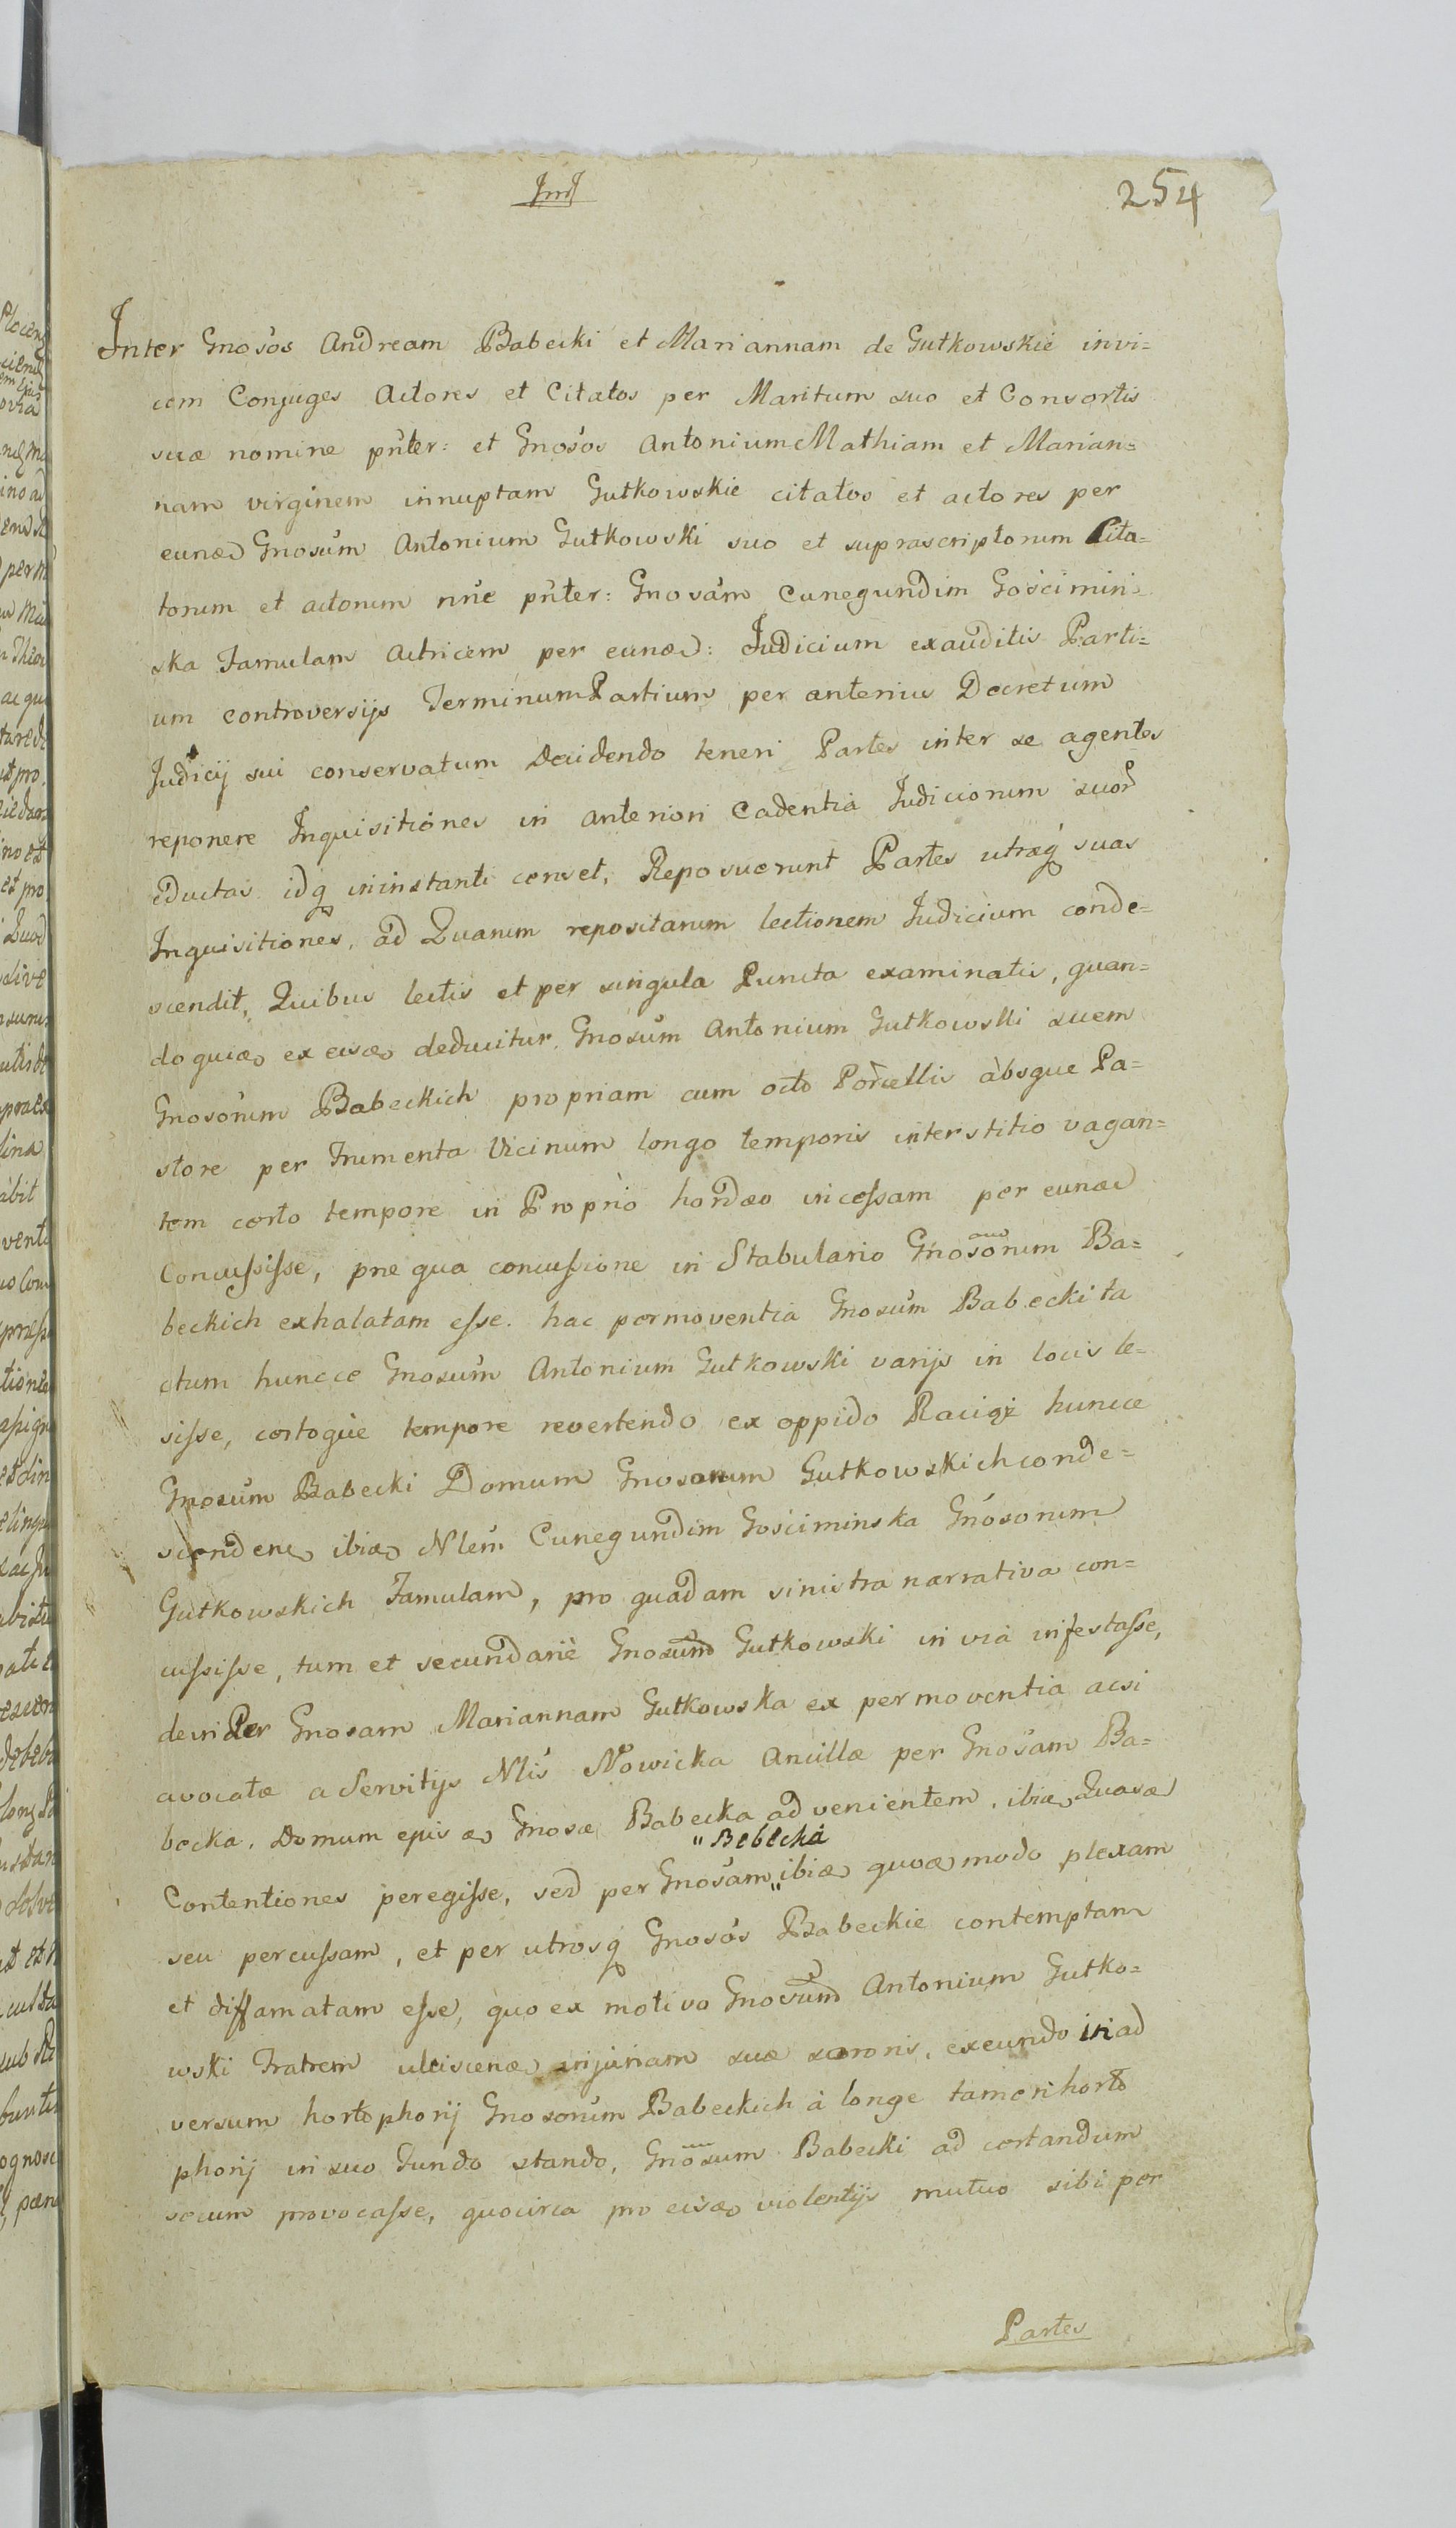 Ind
254
Inter Gnosos Andream Babecki et Mariannam de Gutkowskie invi=
cem Conjuges Actores et Citatos per Maritum suo et Consortis
suæ nomine pnter: et Gnosos Antonium Mathiam et Marian=
nam virginem innuptam Gutkowskie citatos et actores per
eund Gnosum Antonium Gutkowski suo et suprascriptorum Cita=
torum et actorum nne pnter: Gnosam Cunegundim Gościmin=
ska Famulam Actricem per eund: Judicium exauditis Parti=
um controversijs Terminum Partium per anterius Decretum
Judicij sui conservatum Decidendo teneri Partes inter se agentes
reponere Inquisitiones in anteriori Cadentia Judiciorum suor
eductas idq ininstanti censet, Reposuerunt Partes utræq suas
Inquisitiones, ad Quarum repositarum lectionem Judicium conde=
scendit, Quibus lectis et per singula Puncta examinatis, quan=
doquid ex eisd deducitur, Gnosum Antonium Gutkowski suem
Gnosorum Babeckich propriam cum octo Porcellis absque Pa=
store per Frumenta Vicinum longo temporis interstitio vagan=
tem certo tempore in Proprio hordeo incessam per eund
Concussisse, pre qua concussione in Stabulario Gnosorum Ba=
beckich exhalatam esse. hac permoventia Gnosum Babecki ta
ctum huncce Gnosum Antonium Gutkowski varijs in locis le=
sisse, certoque tempore revertendo ex oppido Raciąż huncce
Gnosum Babecki Domum Gnosorum Gutkowskich conde=
scenden ibid Nlem Cunegundim Gosciminska Gnosorum
Gutkowskich Famulam, pro quadam sinistra narrativa con=
cussisse, tum et secundarie Gnosum Gutkowski in via infestasse,
dein Per Gnosam Mariannam Gutkowska ex permoventia acsi
avocatæ a Servitijs Nlis Nowicka Ancillæ per Gnosam Ba=
becka, Domum episd Gnosæ Babecka advenientem, ibid Quasd
"Bebecka
Contentiones peregisse, sed per Gnosam " ibid quodmodo plexam
seu percussam, et per utrosq Gnosos Babeckie contemptam
et diffamatam esse, quo ex motivo Gnosum Antonium Gutko=
wski Fratrem ulciscend injuriam suæ sororis, exeundo in ad
versum hortophorij Gnosorum Babeckich à longe tamen horto
phorij in suo Fundo stando, Gnosum Babecki ad certandum
secum provocasse, quocirca pro eisd violentijs mutuo sibi per
Partes